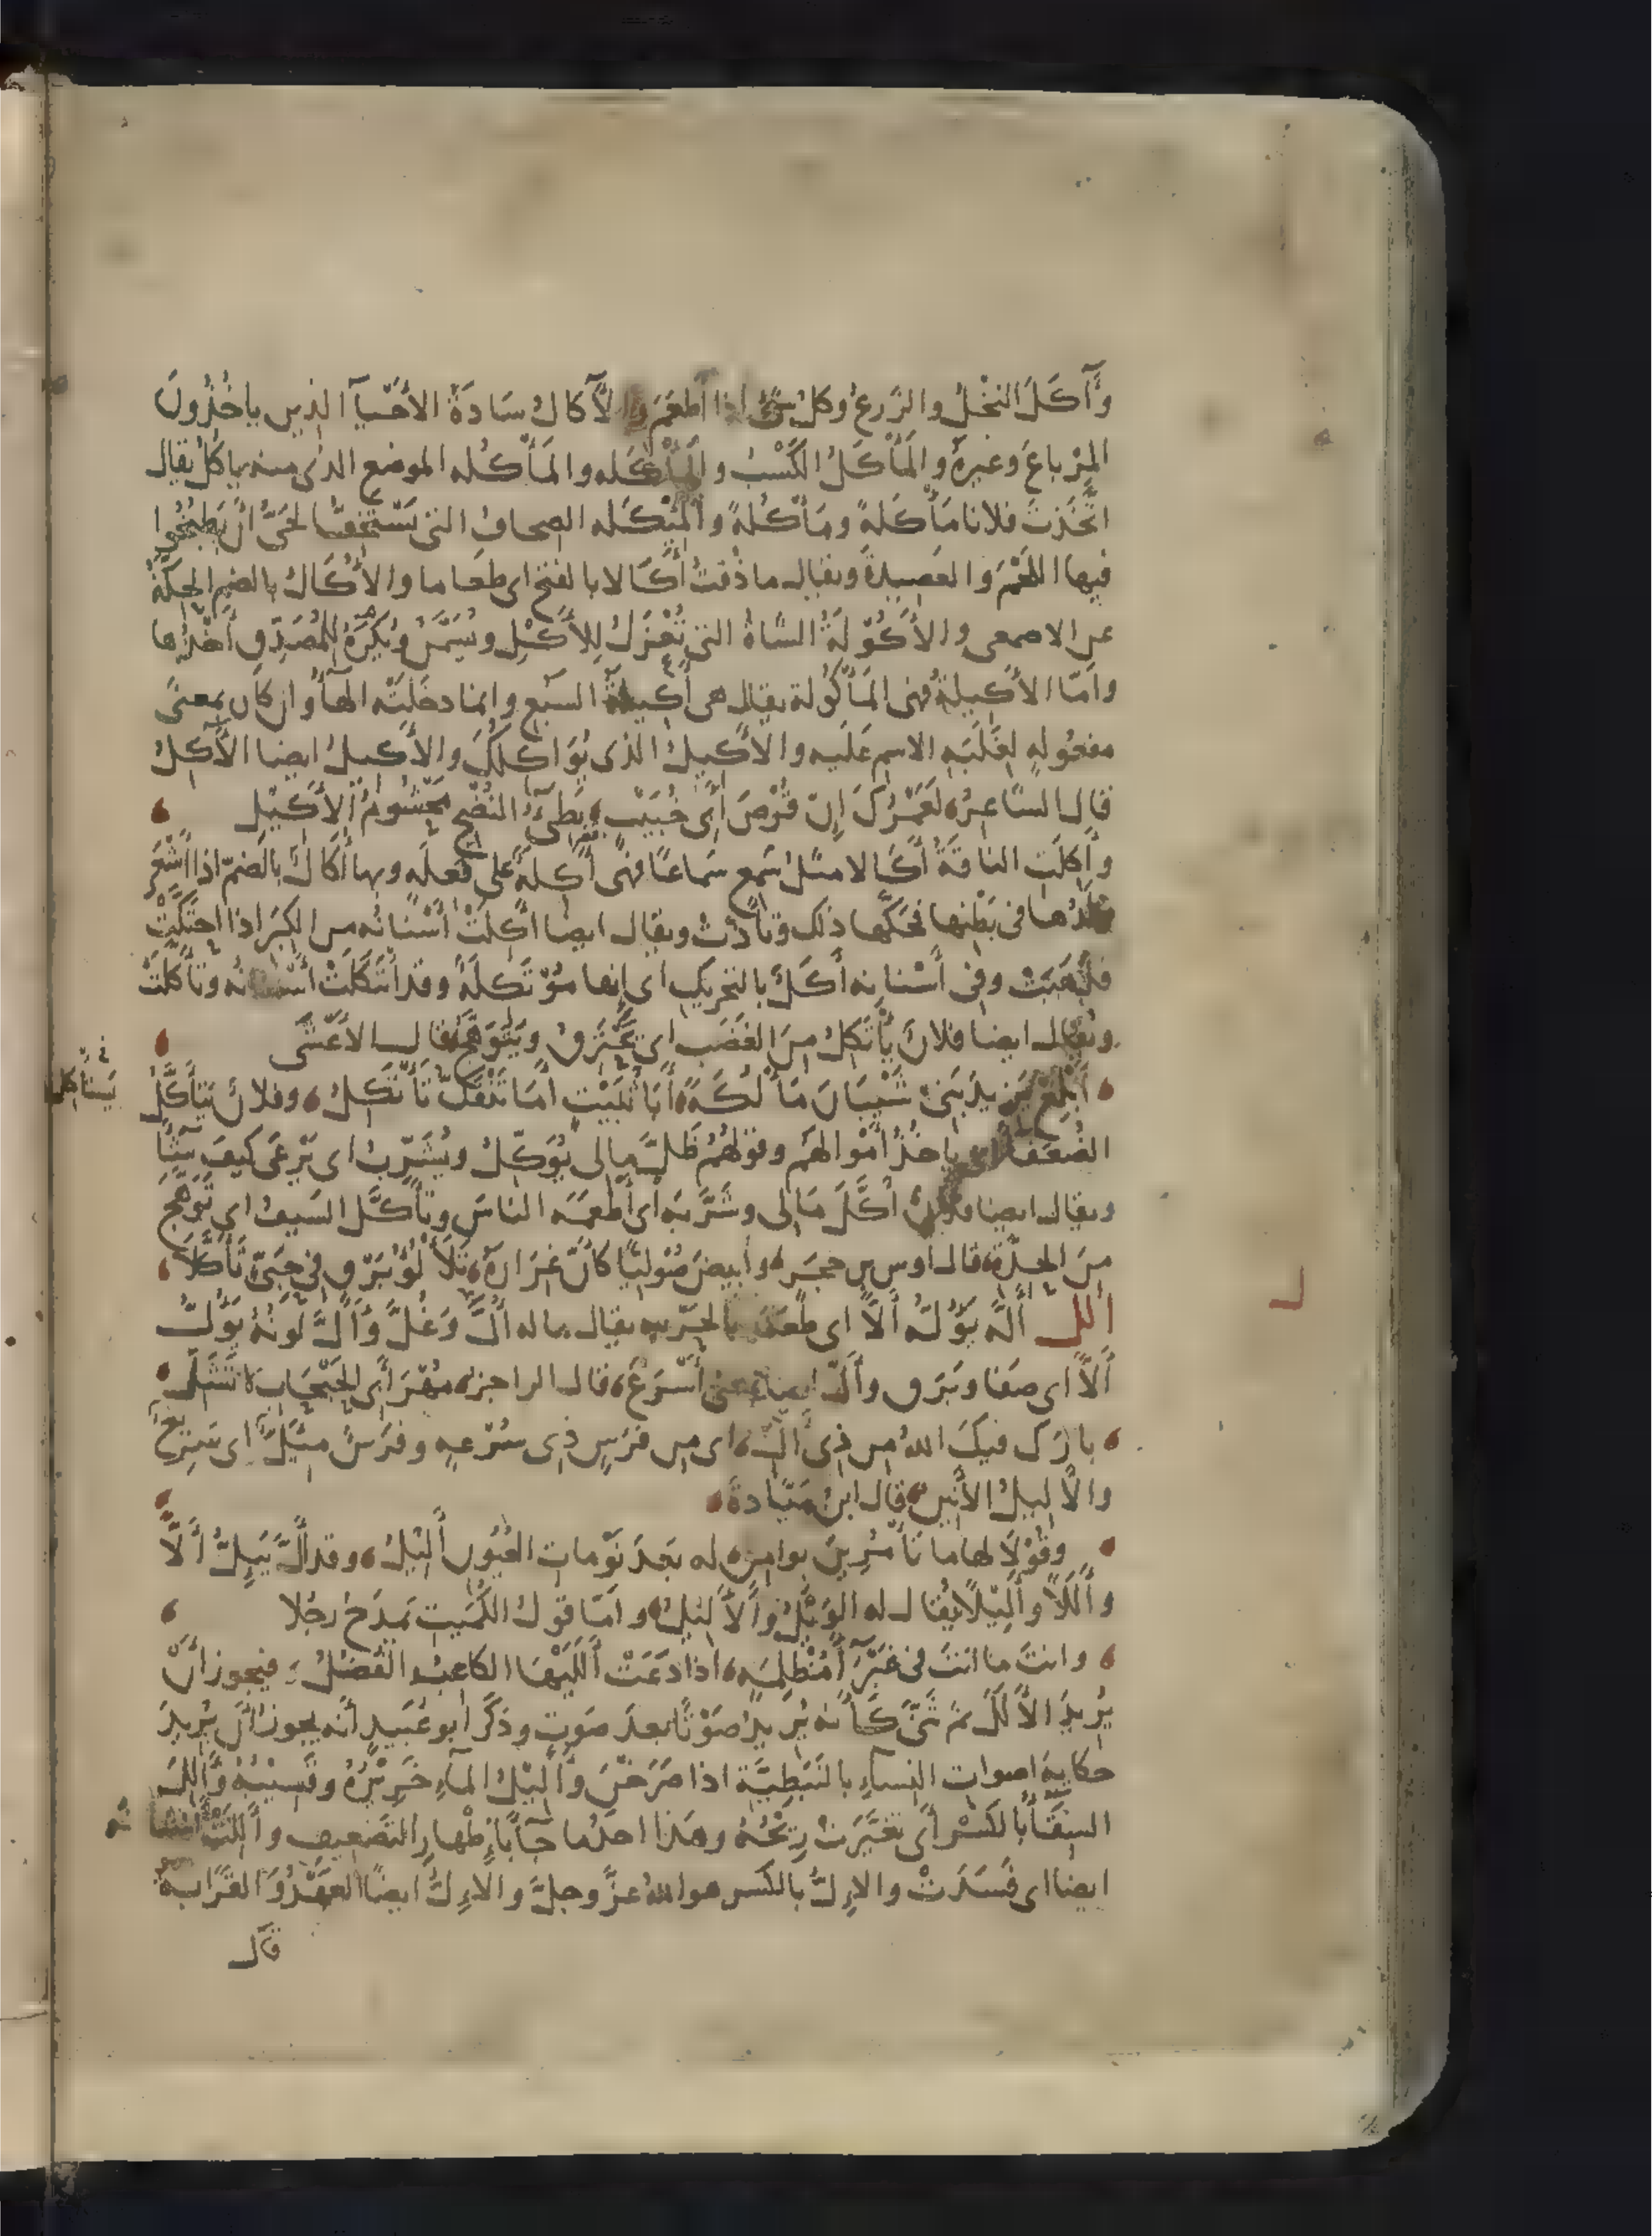 وَآكَلَ النخْلُ والزَرعُ وكل شىْ اذا اَطعَمَ والآكالُ سَادَةُ الأحْيآ الذِين ياخُذُونَ
المِرْباعَ وغيرهَ والمَأْكَلُ الكَسْبُ والمَأْكَله والمَأْكُله الموضع الذى منه ياكُلُ يقال
اتَّخَذتَ فلانا مَأْكَلةً ومَأْكُلةً والمِئْكَله الصِحافُ التى يَسْتَخِفُّ الحَىُّ أنْ يَطبُخُوا
فيها اللَحْمَ والعَصِيدةَ ويقال ما ذُقتُ أَكَالا بالفتح اى طعَاما والأُكَالُ بالضم الحِكّةُ
عن الاصمعى والأَكُوْلةُ الشاةُ التى تُعْزَلُ لِلأكْلِ وتُسَمَّنُ ويُكرَهُ للمُصَدِّقِ أخْذُها
وامّا الأكِيلةُ فهى المَأْكُولة يقال هى أَكِيلةُ السَبُع وانما دخَلَتْه الهآُ وان كان بمعنَى
مفعُولهٍ لِغلَبَهِ الاسم عَلَيه والأكِيلُ الذى يُوَاكلُكَ والأكيلُ ايضا الآكِلُ
قال الشاعِرُ لَعَمْرُكَ إنّ قُرْصَ أبى خُبَيْبٍ بَطِئُ النُضْج مَحْشُومُ الأَكيْلِ
وأَكِلَتِ الناقةُ أَكَالا مثل سَمِع سَماعًا فهى أَكِلةٌ على فَعِلَه وبها أُكَالٌ بالضَمّ اذا أَشْعَرَ
وَلَدُها فى بَطْنِها فحَكَّها ذلك وتأذَّتْ ويقال ايضا أكِلَتْ أَسْنانُه من الكِبَرِ اذا احتَكَّتْ
فذهَبَتْ وفى أَسْنانِه أَكَلٌ بالتحريكِ اى إنها مُوْتَكلةٌ وقد ائتكَلَتْ أَسنانُه وتأكّلَتْ
ويقال ايضا فلانٌ يَأْتَكِلُ مِنَ الغَضَبِ اى يَحْتَرِقُ ويَتَوَهَّجُ قال الأَعْشَى
أَبْلِغْ يَزيدَ بَنى شَيْبَانَ مَأْلُكَةً أَبَا ثُبَيْتٍ أَمَا تَنْفَكّ تَأْتَكِلُ وفلانٌ يَتأكَّلُ
يَستأكل
الضُعَفَآ اى ياخُذُ أمْوالَهم وقولُهُمْ ظلَّ مالى يُوَكّلُ ويُشَرّبُ اى يَرْعَى كيفَ شآ
ويقال ايضا فلان أكَّلَ مَالِى وشَرَّبَهُ اى أطعَمَه الناسَ وتأكَّلَ السَيفُ اى تَوَهَّجَ
مِنَ الحِدَّة قال اوس بن حجَر وأبيضَ صُوْلِيًّا كأنَّ غِرَارَهُ تَلَأْلُؤُ بَرْقٍ فى حَبِىٍّ تَأَكَّلَا
ألل أَلَّهُ يَؤُلُّه أَلًّا اى طعَنَه بالحَرْبه يقال ما له أُلَّ وغُلَّ وَأَلَّ لَونُهُ يَؤُلُّ
أَلًّا اى صَفا وبَرَق وأَلَّ ايضا بمعنى أَسْرَعَ قال الراجز مُهْرَ أبى الحَبْحَابِ لا تَشَلِّ
بارَك فيكَ اللهُ مِن ذِى أَلِّ اى مِن فَرَسٍ ذِى سُرْعهٍ وفَرَسٌ مِئَلٌّ اى سَرِيع
والأَلِيلُ الأَنِين قال ابنُ مَيّادةَ
وقُوْلَا لها ما تَأْمُرِينَ بوامِقٍ له بَعدَ نَوْماتِ العُيُونِ أَلِيْلُ وقد أَلَّ يَئِلُّ أَلًّا
وأَلَلًا وأَلِيْلًا يُقال له الوَيْلُ والأَلِيْلُ وامّا قولُ الكُمَيت يَمدَحُ رجُلا
وانتَ ما انتَ فى غَبْرَآ مُظلِمَهٍ اذا دَعَتْ أَلَلَيْهَا الكاعِبُ الفُضُلُ فيجوز أَنْ
يُرِيدَ الأَلَلَ ثم ثَنَّى كأنه يُرِيدُ صَوْتًا بعدَ صَوتٍ وذكَرَ ابو عُبَيدٍ أنه يجوز أنْ يُرِيدَ
حكايهَ اصواتِ النِساءِ بالنَبَطِيَّةِ اذا صَرَخْنَ وأَلِيْلُ المآءِ خَرِيْرُهُ وقَسِيْبُهُ وأَلِلَ
السِقَآ بالكَسْرِ أى تغَيَّرَتْ رِيحُهُ وهَذا احدُ ما جآ بإِظهارِ التضعِيفِ وأَلِلَتْ أسْنانُه
ايضا اى فَسَدَتْ والإِلُّ بالكسر هو اللهُ عزَّ وجلَّ والاءِلُّ ايضًا العَهْدُ وَالقَرَابهُ
قال